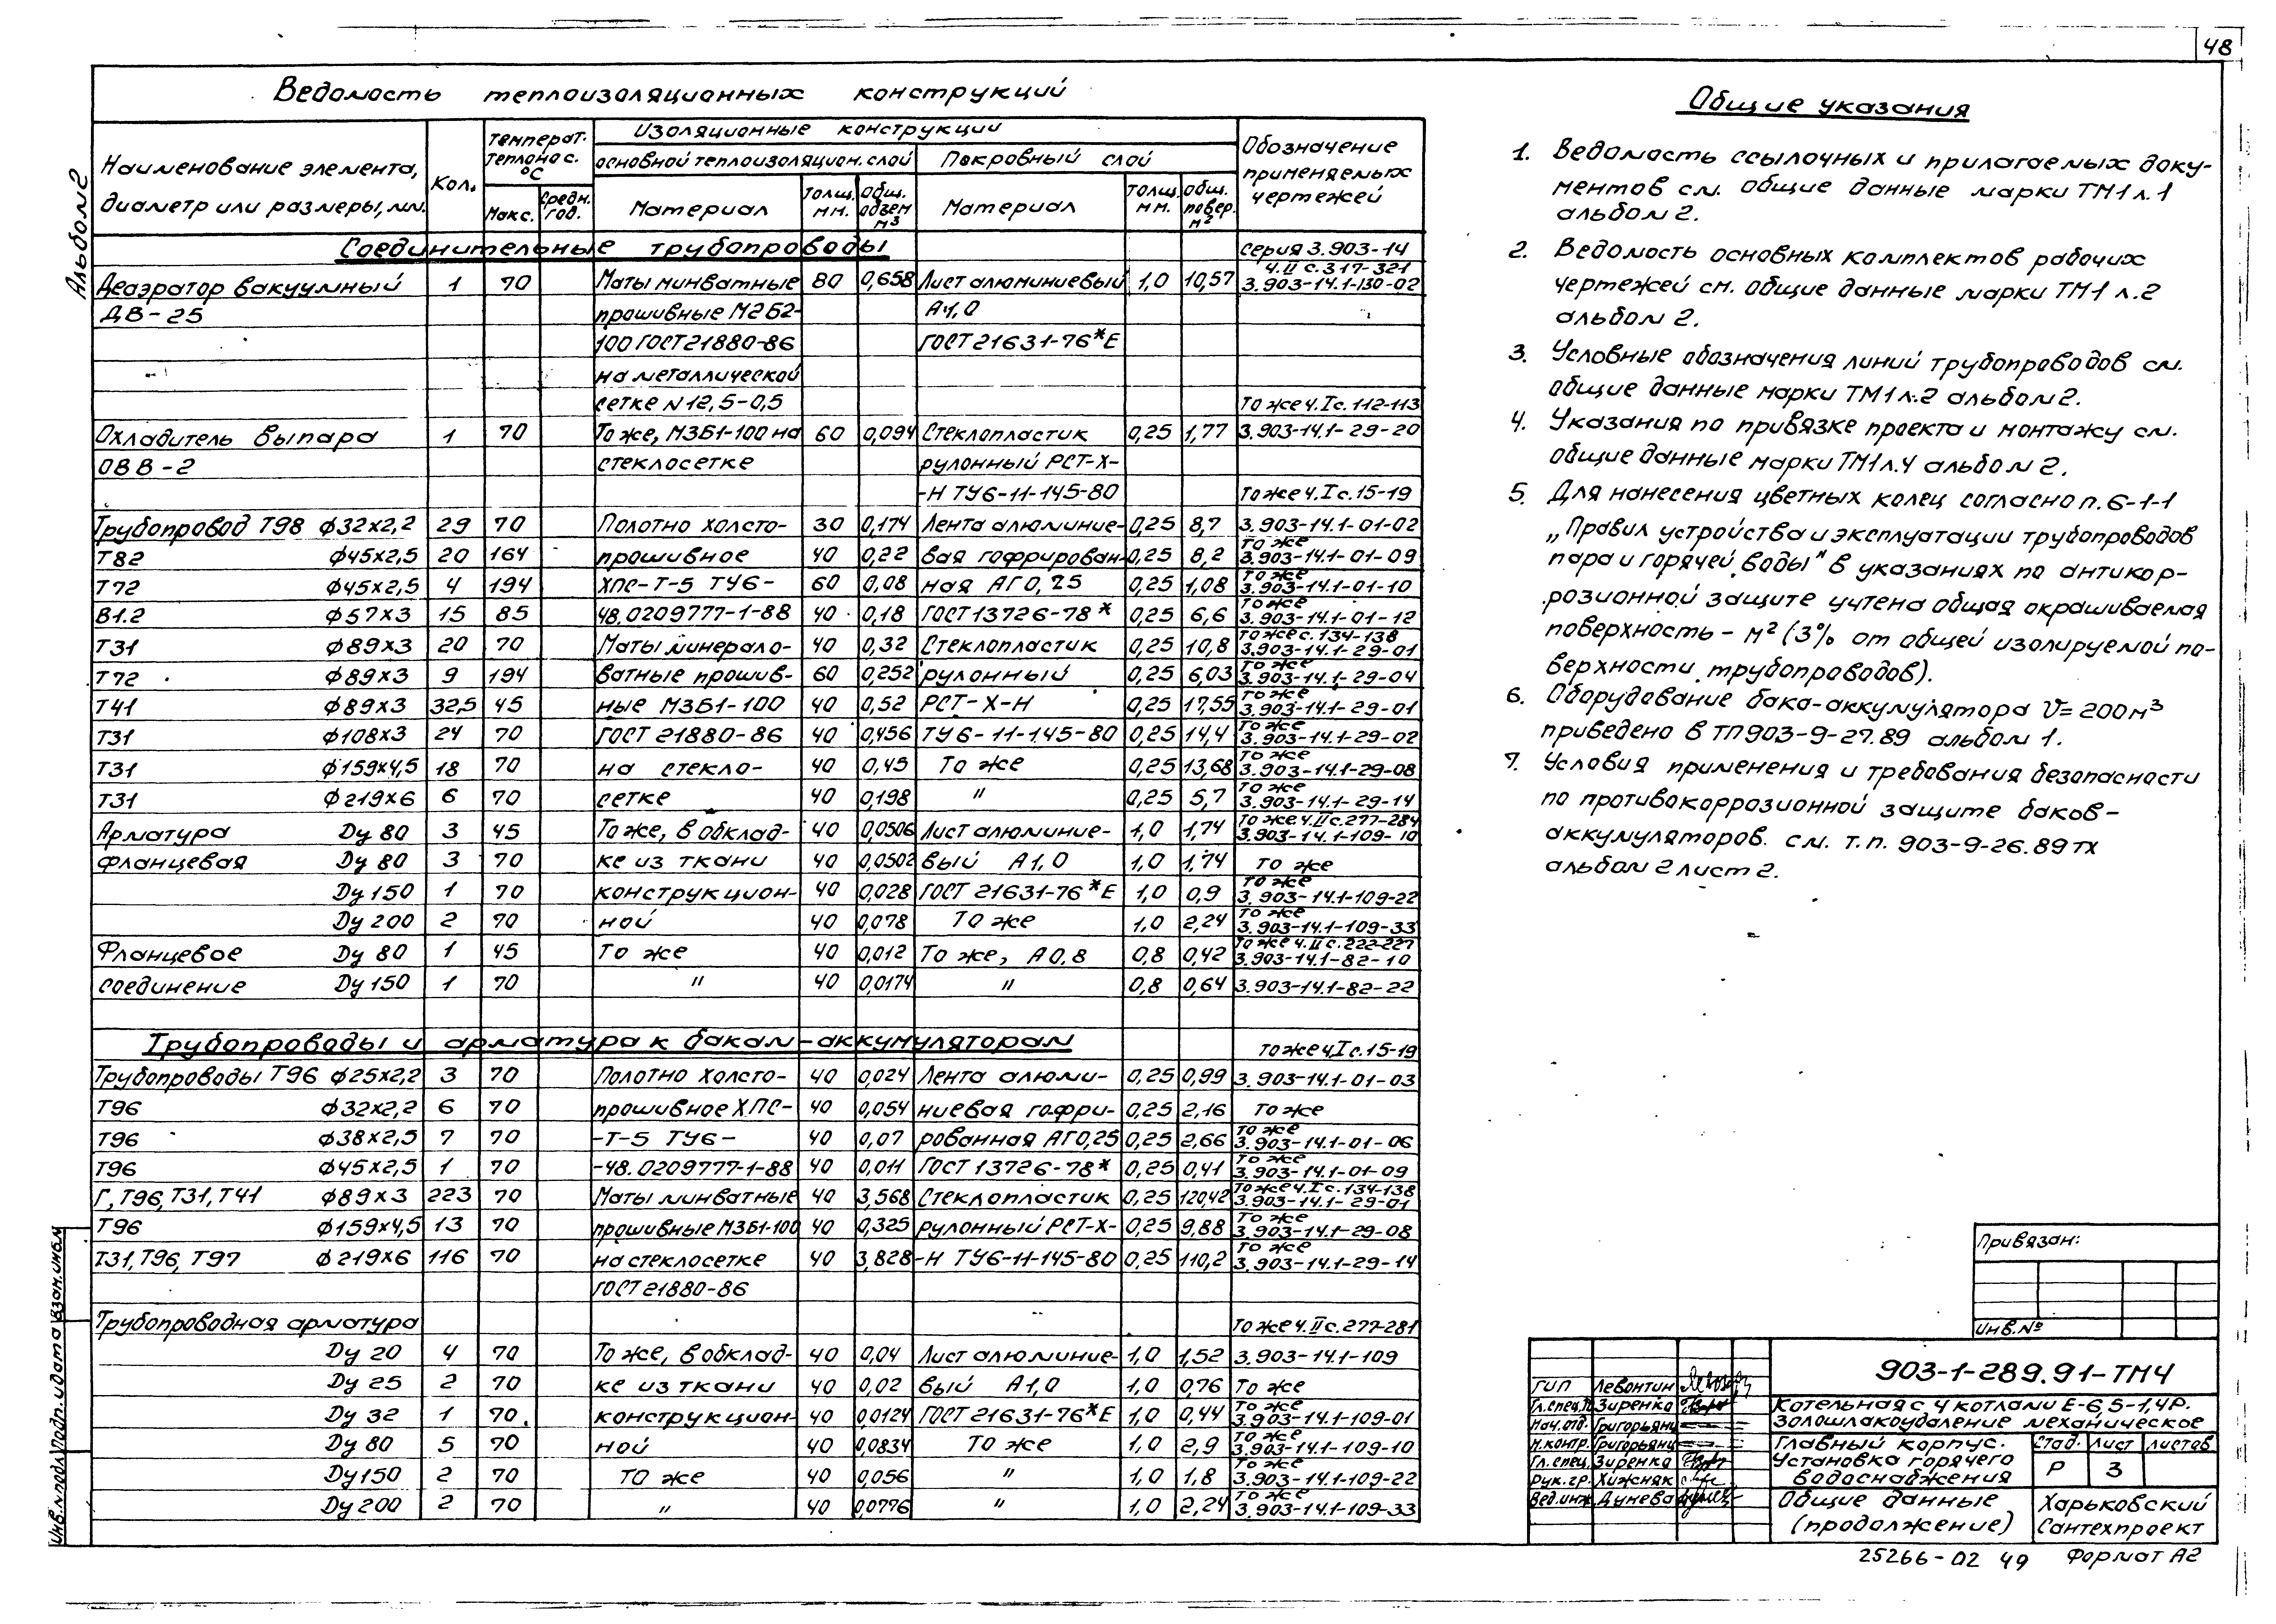 48
Альбом 2
Ведомость теплоизоляционных конструкций
Наименование элемента, диаметр или размеры, мм.
Кол.
Температ. теплонос. °С
Макс.
Средн. год.
Изоляционные конструкции
основной теплоизоляцион. слой
Покровный слой
Материал
Толщ. мм.
Общ. объем м3
Материал
Толщ. мм.
Общ. повер. м2
Обозначение применяемых чертежей
Соединительные трубопроводы
серия 3.903-14
ч.II с.317-321
Деаэратор вакуумный 1 70 Маты минватные 80 0,658 Лист алюминиевый 1,0 10,57 3.903-14.1-130-02
ДВ-25 прошивные М2Б2- А4,0
100 ГОСТ 21880-86 ГОСТ 21631-76*Е
на металлической
сетке N12,5-0,5 то же ч.I с.112-113
Охладитель выпара 1 70 То же, М3Б1-100 на 60 0,094 Стеклопластик 0,25 1,77 3.903-14.1-29-20
ОВВ-2 стеклосетке рулонный РСТ-Х-
-Н ТУ6-11-145-80 то же ч.I с.15-19
Трубопровод Т98 ф32х2,2 29 70 Полотно холсто- 30 0,174 Лента алюминие- 0,25 8,7 3.903-14.1-01-02
Т82 ф45х2,5 20 164 прошивное 40 0,22 вая гофрирован- 0,25 8,2 то же 3.903-14.1-01-09
Т72 ф45х2,5 4 194 ХПС-Т-5 ТУ6- 60 0,08 ная АГ0,25 0,25 1,08 то же 3.903-14.1-01-10
В1.2 ф57х3 15 85 48.0209777-1-88 40 0,18 ГОСТ 13726-78* 0,25 6,6 то же 3.903-14.1-01-12
Т31 ф89х3 20 70 Маты минерало- 40 0,32 Стеклопластик 0,25 10,8 то же с.134-138 3.903-14.1-29-01
Т72 ф89х3 9 194 ватные прошив- 60 0,252 рулонный 0,25 6,03 то же 3.903-14.1-29-04
Т41 ф89х3 32,5 45 ные М3Б1-100 40 0,52 РСТ-Х-Н 0,25 17,55 то же 3.903-14.1-29-01
Т31 ф108х3 24 70 ГОСТ 21880-86 40 0,456 ТУ6-11-145-80 0,25 14,4 то же 3.903-14.1-29-02
Т31 ф159х4,5 18 70 на стекло- 40 0,45 То же 0,25 13,68 то же 3.903-14.1-29-08
Т31 ф219х6 6 70 сетке 40 0,198 " 0,25 5,7 то же 3.903-14.1-29-14
Арматура Dу 80 3 45 То же, в обклад- 40 0,0506 Лист алюминие- 1,0 1,74 то же ч.II с.277-284 3.903-14.1-109-10
фланцевая Dу 80 3 70 ке из ткани 40 0,0502 вый А1,0 1,0 1,74 то же
Dу 150 1 70 конструкцион- 40 0,028 ГОСТ 21631-76*Е 1,0 0,9 то же 3.903-14.1-109-22
Dу 200 2 70 ной 40 0,078 То же 1,0 2,24 то же 3.903-14.1-109-33
Фланцевое Dу 80 1 45 То же 40 0,012 То же, А0,8 0,8 0,42 то же ч.II с.222-227 3.903-14.1-82-10
соединение Dу 150 1 70 " 40 0,0174 " 0,8 0,64 3.903-14.1-82-22
Трубопроводы и арматура к бакам-аккумуляторам
то же ч.I с.15-19
Трубопроводы Т96 ф25х2,2 3 70 Полотно холсто- 40 0,024 Лента алюми- 0,25 0,99 3.903-14.1-01-03
Т96 ф32х2,2 6 70 прошивное ХПС- 40 0,054 ниевая гофри- 0,25 2,16 то же
Т96 ф38х2,5 7 70 -Т-5 ТУ6- 40 0,07 рованная АГ0,25 0,25 2,66 то же 3.903-14.1-01-06
Т96 ф45х2,5 1 70 -48.0209777-1-88 40 0,011 ГОСТ 13726-78* 0,25 0,41 то же 3.903-14.1-01-09
Г, Т96, Т31, Т41 ф89х3 223 70 Маты минватные 40 3,568 Стеклопластик 0,25 120,42 то же ч.I с.134-138 3.903-14.1-29-01
Т96 ф159х4,5 13 70 прошивные М3Б1-100 40 0,325 рулонный РСТ-Х- 0,25 9,88 то же 3.903-14.1-29-08
Т31, Т96, Т97 ф219х6 116 70 на стеклосетке 40 3,828 -Н ТУ6-11-145-80 0,25 110,2 то же 3.903-14.1-29-14
ГОСТ 21880-86
Трубопроводная арматура то же ч.II с.277-281
Dу 20 4 70 То же, в обклад- 40 0,04 Лист алюминие- 1,0 1,52 3.903-14.1-109
Dу 25 2 70 ке из ткани 40 0,02 вый А1,0 1,0 0,76 то же
Dу 32 1 70 конструкцион- 40 0,0124 ГОСТ 21631-76*Е 1,0 0,44 то же 3.903-14.1-109-01
Dу 80 5 70 ной 40 0,0834 То же 1,0 2,9 то же 3.903-14.1-109-10
Dу 150 2 70 то же 40 0,056 " 1,0 1,8 то же 3.903-14.1-109-22
Dу 200 2 70 " 40 0,0776 " 1,0 2,24 то же 3.903-14.1-109-33
Общие указания
1. Ведомость ссылочных и прилагаемых доку-
ментов см. общие данные марки ТМ1 л.1
альбом 2.
2. Ведомость основных комплектов рабочих
чертежей см. общие данные марки ТМ1 л.2
альбом 2.
3. Условные обозначения линий трубопроводов см.
общие данные марки ТМ1 л.2 альбом 2.
4. Указания по привязке проекта и монтажу см.
общие данные марки ТМ1 л.4 альбом 2.
5. Для нанесения цветных колец согласно п.6-1-1
„Правил устройства и эксплуатации трубопроводов
пара и горячей воды" в указаниях по антикор-
розионной защите учтена общая окрашиваемая
поверхность - м² (3% от общей изолируемой по-
верхности трубопроводов).
6. Оборудование бака-аккумулятора V=200м³
приведено в ТП903-9-27.89 альбом 1.
7. Условия применения и требования безопасности
по противокоррозионной защите баков-
аккумуляторов. см. т.п. 903-9-26.89 тх
альбом 2 лист 2.
Привязан:
Инв.№
903-1-289.91-ТМ4
Котельная с 4 котлами Е-6,5-1,4Р.
Золошлакоудаление механическое
Главный корпус.
Установка горячего
водоснабжения
Стад. Лист Листов
Р 3
Общие данные
(продолжение)
Харьковский
Сантехпроект
ГИП Левонтин
Гл.спец. Зиренко
Нач.отд. Григорьянц
Н.контр. Григорьянц
Гл.спец. Зиренко
Рук.гр. Хижняк
Вед.инж. Дунева
Инв.№подл. Подп. и дата Взам.инв.№
25266-02 49 Формат А2